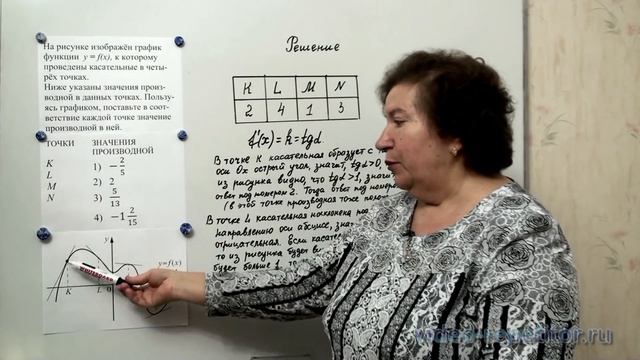 На рисунке изображён график
функции y = f(x), к которому
проведены касательные в четы-
рёх точках.
Ниже указаны значения произ-
водной в данных точках. Пользу-
ясь графиком, поставьте в соот-
ветствие каждой точке значение
производной в ней.
ТОЧКИ ЗНАЧЕНИЯ
ПРОИЗВОДНОЙ
K
L
M
N
1) −2/5
2) 2
3) 5/13
4) −1 2/15
y
y=f(x)
K L O
Решение
K L M N
2 4 1 3
f'(x)=k=tgα
В точке K касательная образует с
оси Ox острый угол, значит, tgα>0,
из рисунка видно, что tgα>1, значит
ответ под номером 2. Тогда ответ под номер
(в этой точке производная тоже поло
В точке L касательная наклонена по
направлению оси абсцисс, зна
отрицательная. Если касате
то из рисунка будет ви
будет больше 1, то
video-repetitor.ru